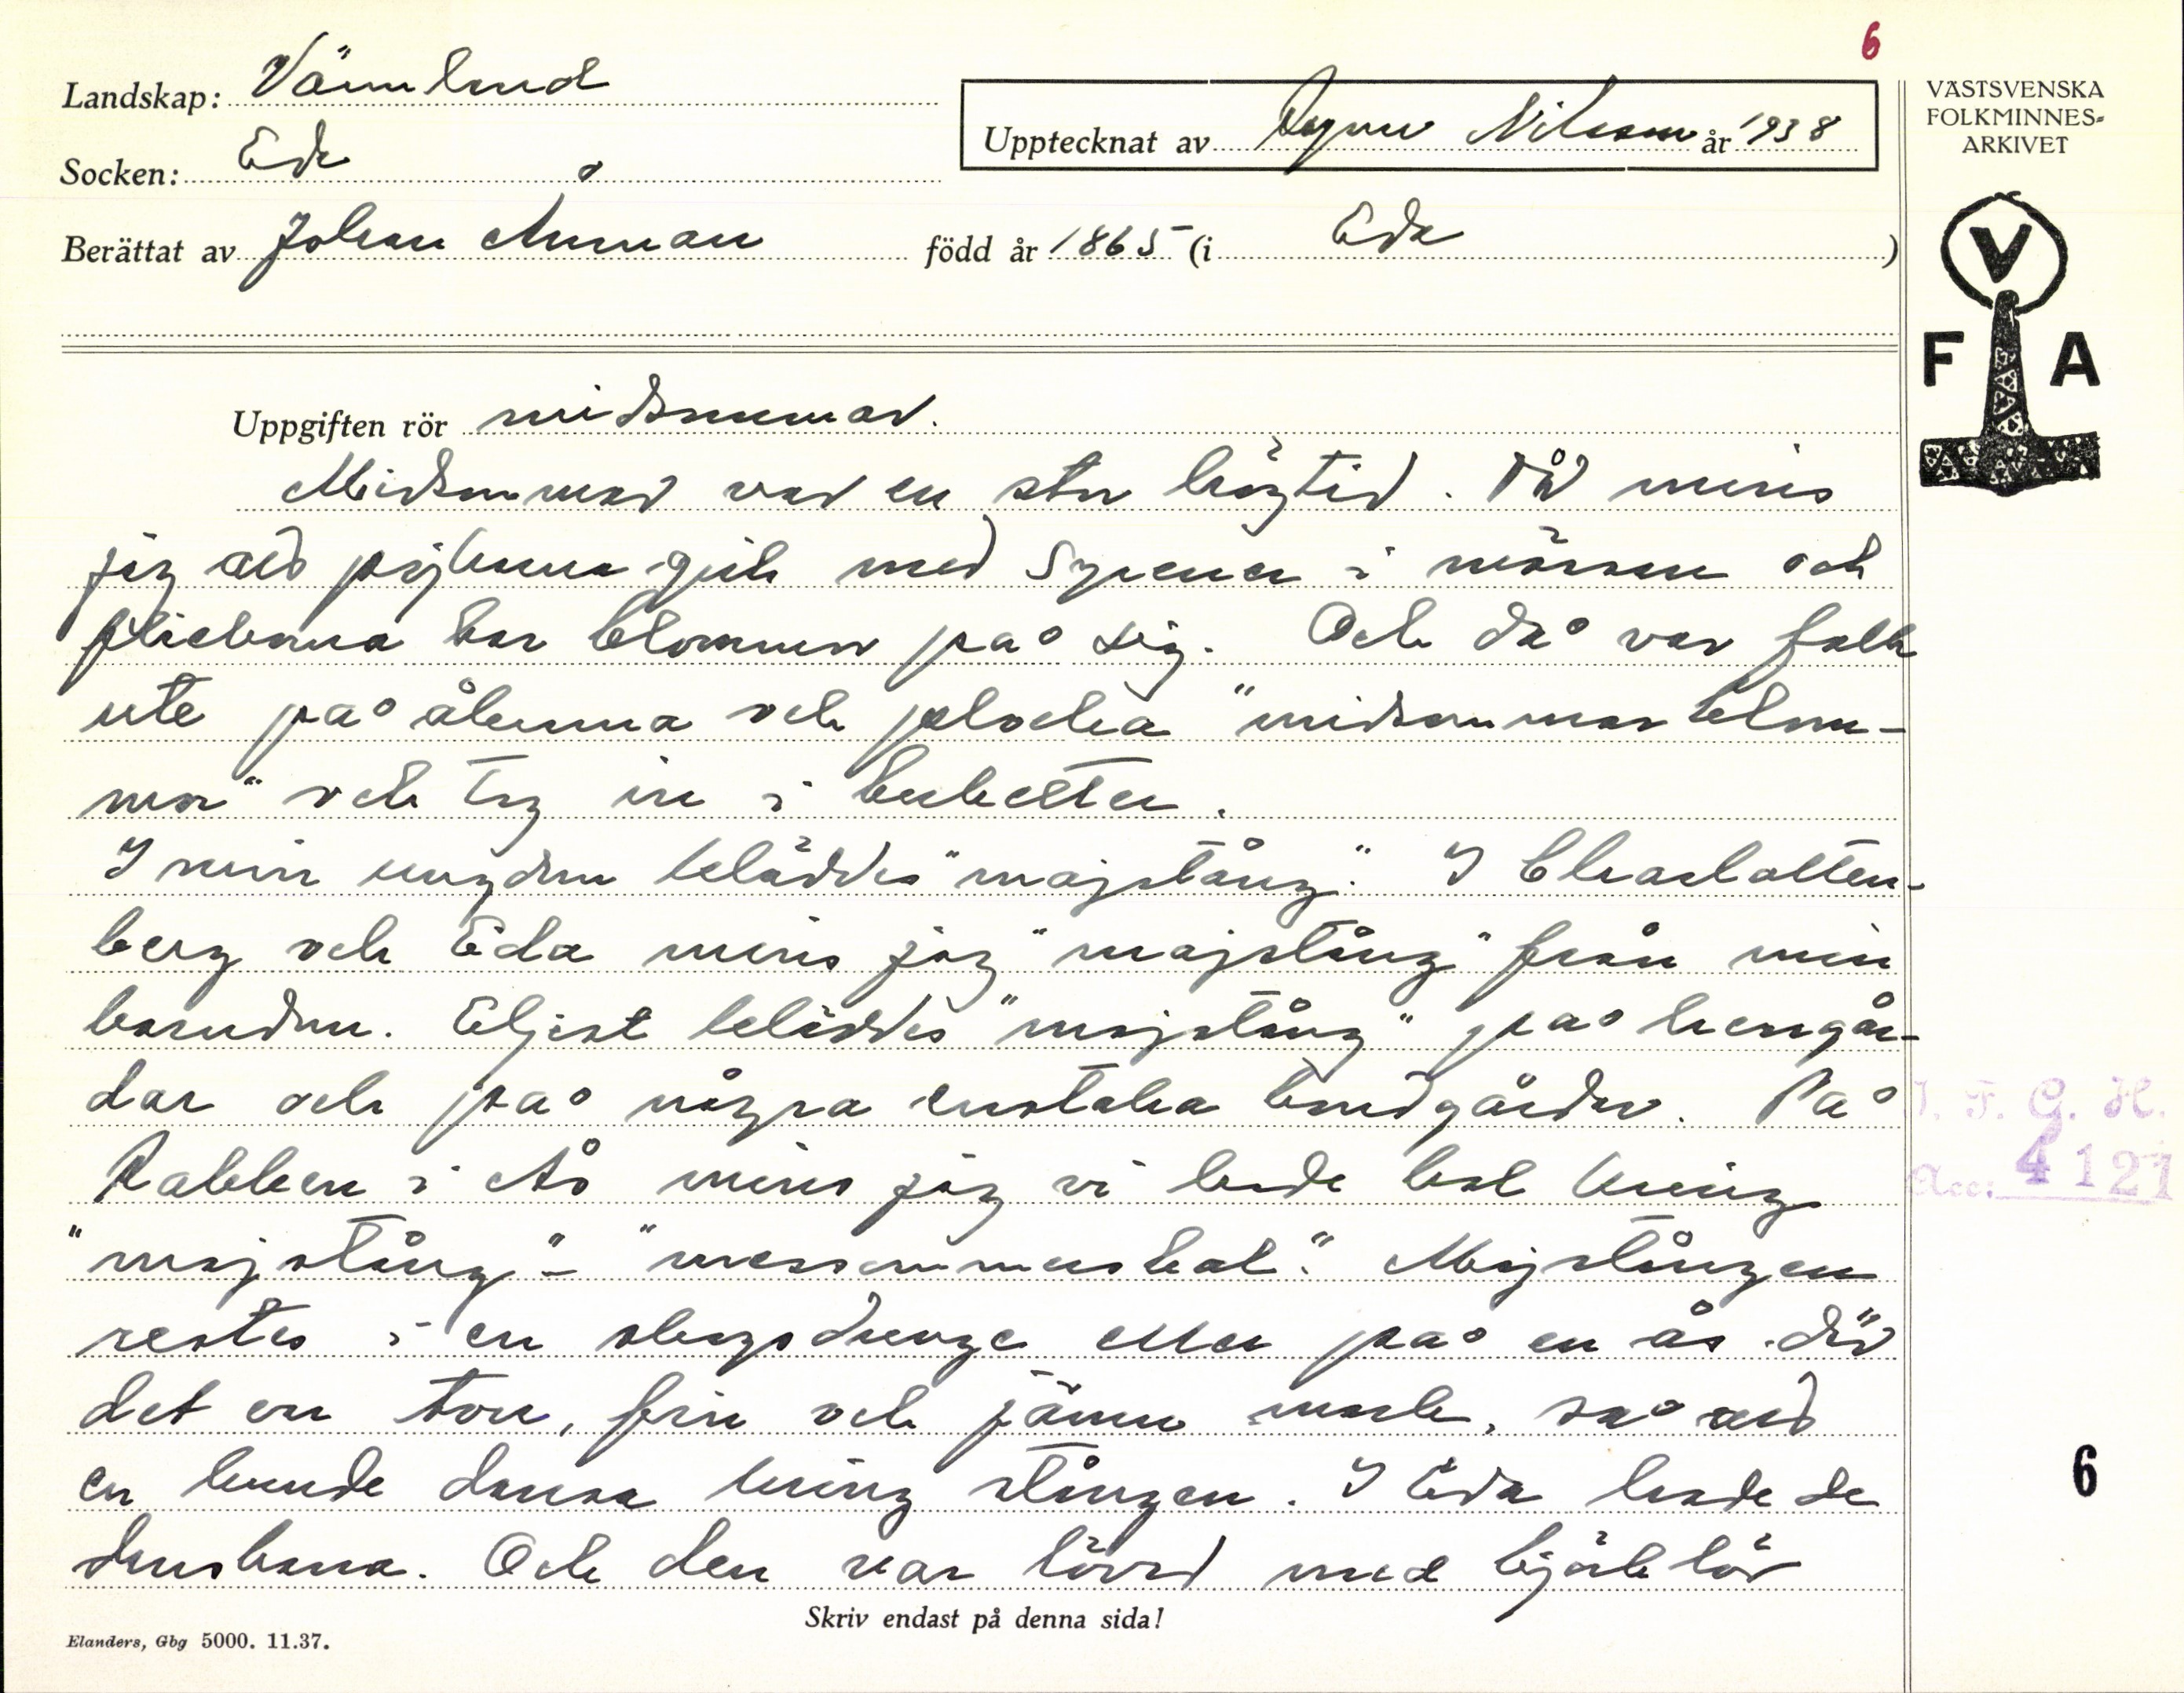 6
Landskap: Värmland
Socken: Eda
Upptecknat av Ragnar Nilsson år 1938
VÄSTSVENSKA
FOLKMINNES-
ARKIVET
Berättat av Johan Åmman född år 1865 (i Eda)
V
F A
Uppgiften rör midsommar.
Midsommar var en stor högtid. Då minns
jag att pojkarna gick med syrener i mössan och
flickorna bar blommor på sig. Och då var folk
ute på åkrarna och plocka "midsommarblom-
mor" och tog in i buketter.
I min ungdom kläddes "majstång". I Charlotten-
berg och Eda minns jag "majstång" från min
barndom. Eljest kläddes "majstång" på herrgår-
dar och på några enstaka bondgårdar. På
Rabben i Ås minns jag vi hade bal kring
"majstång" - "messommersbal". Majstången
restes i en skogsdunge eller på en ås där
det en torr, fin och jämn mark, så att
en kunde dansa kring stången. I Eda hade de
dansbana. Och den var lövad med björklöv
I. F. G. H.
Acc: 4121
6
Skriv endast på denna sida!
Elanders, Gbg 5000. 11.37.